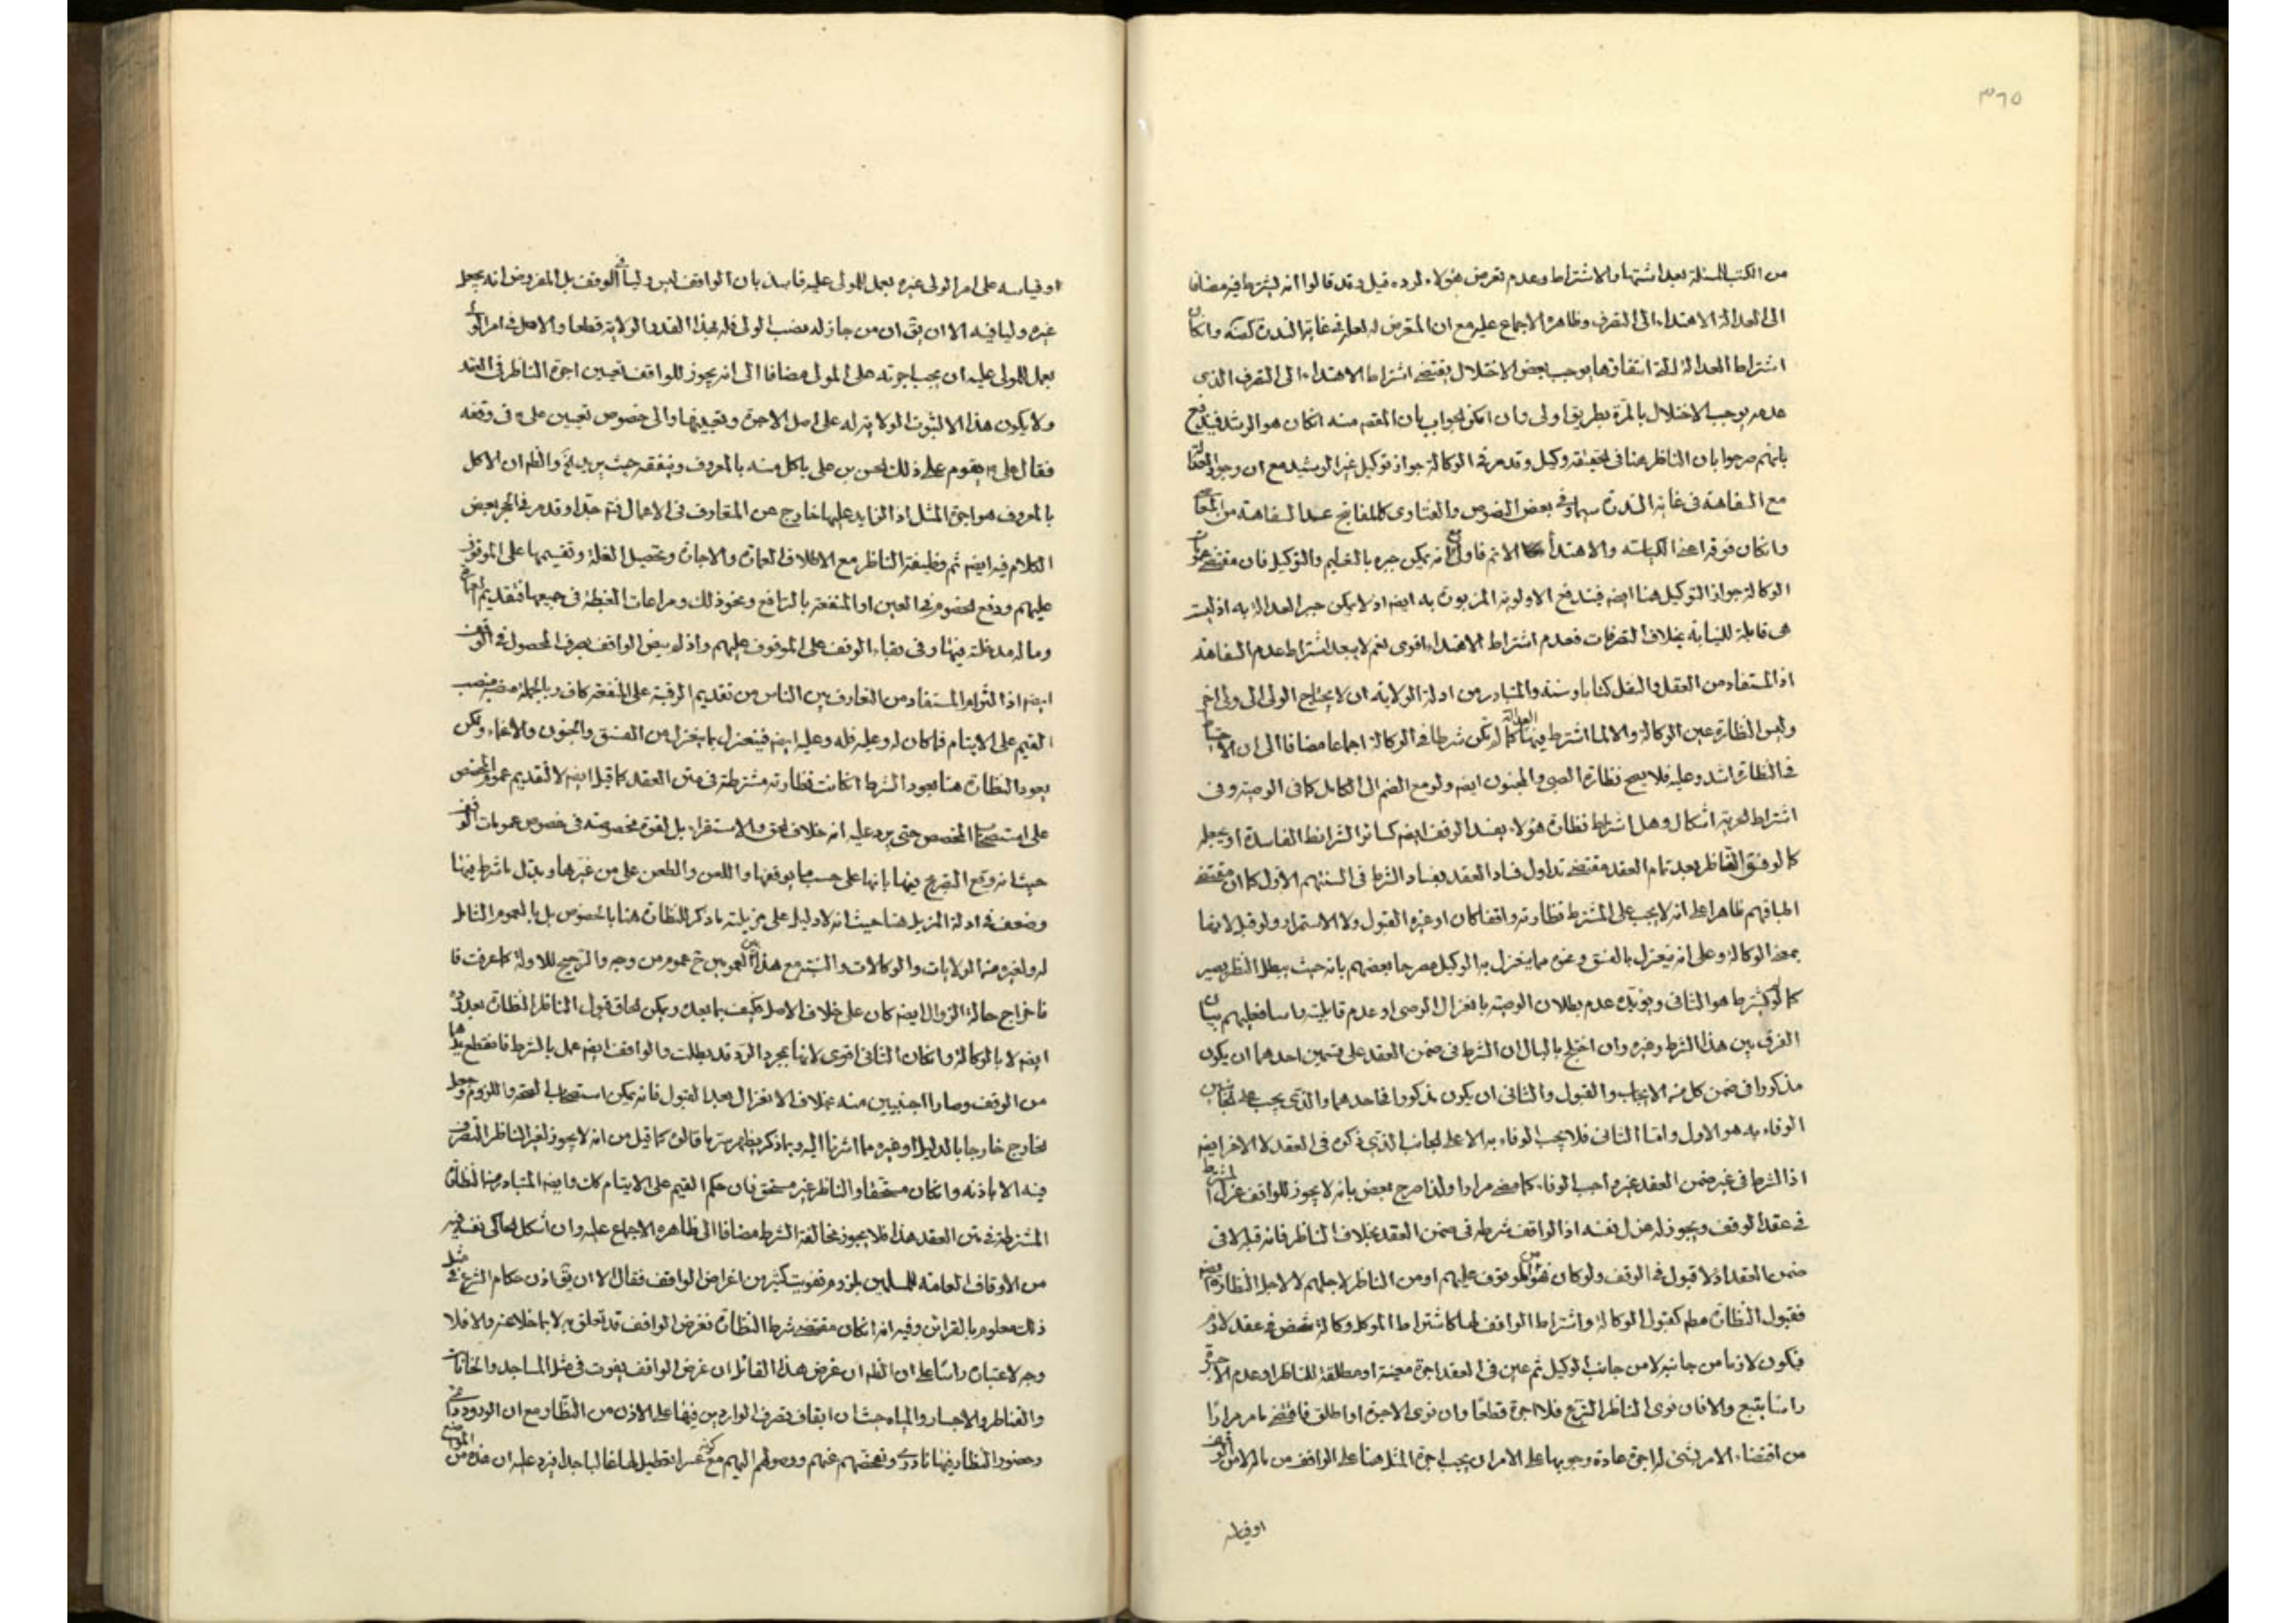 ٣٦٥
من الكتب المسئلة بعد اشتهار الاشتراط وعدم تعرض هؤلاء لرده قيل وقد قالوا انه يشترط فيه مضافا
الى العدالة الاهتداء الى التصرف وظاهره الاجماع عليه مع ان المتعرض له لعله في غاية الندرة وانكان
اشتراط العدالة انتفاؤها يوجب بعض الاختلال يقتضى اشتراط الاهتداء الى التصرف الذى
عدمه يوجب الاختلال بالمرة بطريق اولى وان امكن الجواب بان المقصد منه انكان هو الرشد فيندفع
بانهم صرحوا بان الناظر هنا فى الحقيقة وكيل وقد مر فى الوكالة جواز توكيل غير الرشيد مع ان وجود العدالة
مع السفاهة فى غاية الندرة سيما وفى بعض النصوص والفتاوى كالمفاتيح عد السفاهة من
وانكان فوقه اعنى الكياسة والاهتداء الاتم فاولى مع انه يمكن جبره بالتعليم والتوكيل فان مقتضى
الوكالة جواز التوكيل هنا ايضه فيندفع الاولوية المزبورة به ايضه اذ لا يمكن جبر العدالة به اذ ليست
هى قابلة للنيابة بخلاف التصرفات فعدم اشتراط الاهتداء اقوى نعم لا يبعد اشتراط عدم السفاهة
اذ المستفاد من العقل والنقل كتابا وسنة والمتبادر من ادلة الولاية ان لا يحتاج الولى الى ولى اخر
وليس النظارة عين الوكالة والا لما اشترط فيها العدالة كما لم تكن شرطا فى الوكالة اجماعا مضافا الى ان الاحتياج
فى النظارة اشد وعليه فلا يصح نظارة الصبى والمجنون ايضه ولو مع الضم الى الكامل كما فى الوصية وفى
اشتراط الحرية اشكال وهل اشتراط نظارة هؤلاء يفسد الوقف ايضه كسائر الشرائط الفاسدة او يجعله
كما لو فسق الناظر بعد تمام العقد مقتضى تداول فساد العقد بفساد الشرط فى السنتهم الاول كما ان مقتضى
اطباقهم ظاهرا على انه لا يجب على المشترط نظارته واقفا كان او غيره القبول ولا الاستمرار ولو قبل لانها
بمعنى الوكالة وعلى انه ينعزل بالفسق ونحوه مما ينعزل به الوكيل مصرحا بعضهم بانه حيث يبطل النظر يصير
كما لو لم يشترط هو الثانى ويؤيده عدم بطلان الوصية بانعزال الوصى او عدم قابليته راسا فعليهم بيان
الفرق بين هذا الشرط وغيره وان اختلج بالبال ان الشرط فى ضمن العقد على قسمين احدهما ان يكون
مذكورا فى ضمن كل من الايجاب والقبول والثانى ان يكون مذكورا فى احدهما والذى يجب على
الوفاء به هو الاول واما الثانى فلا يجب الوفاء به الا على الجانب الذى ذكره فى العقد لا الاخر ايضه
اذ الشرط فى غير ضمن العقد غير واجب الوفاء كما مضى مرارا ولذا صرح بعض بانه لا يجوز للواقف عزل المشترط
فى عقد الوقف ويجوز له عزل نفسه اذ الواقف شرطه فى ضمن العقد بخلاف الناظر فانه قبله لا فى
ضمن العقد اذ لا قبول فى الوقف ولو كان فهو من الموقوف عليهم او من الناظر لاجلهم لا لاجل النظارة
فقبول النظارة مطه كقبول الوكالة واشتراط الواقف لها كاشتراط الموكل وكالة شخص فى عقد لازم
فيكون لازما من جانبه لا من جانب الوكيل ثم عين فى العقد اجرة معينة او مطلقة للناظر او عدم الاجرة
راسا يتبع والا فان نوى الناظر التبرع فلا اجرة قطعا وان نوى الاجرة او اطلق فاقتضى ما مر مرارا
من اقتضاء الامر بشئ له اجرة عادة وجوبها على الامر ان يجب اجرة المثل هنا على الواقف من ماله لا من الوقف
او قياسه
او قياسه على امر الولى غيره بعمل للمولى عليه فاسد بان الواقف ليس وليا فى الوقف بل المفروض انه يجعل
غيره وليا فيه الا ان يق ان من جاز له نصب الولى فله بهذا القدر الولاية قطعا والاصل فى امر الولى
بعمل للمولى عليه ان يجب اجرته على المولى مضافا الى انه يجوز للواقف تعيين اجرة الناظر فى العقد
ولا يكون هذا الا لثبوت الولاية له على اصل الاجرة وتقييدها والى خصوص تعيين على ء فى وقفه
فقال على ء يقوم على ذلك الحسن بن على ياكل منه بالمعروف وينفقه حيث يريد الخ والظه ان الاكل
بالمعروف هو اجرة المثل اذ الزايد عليها خارج عن المتعارف فى الاعمال فتم جدا وقد مر فى الحجر بعض
الكلام فيه ايضه ثم وظيفة الناظر مع الاطلاق العمارة والاجارة وتحصيل الغلة وتقسيمها على الموقوف
عليهم ودفع الخصوم فى العين او المنفعة بالترافع ونحو ذلك ومراعات الغبطة فى جميعها فتقديم
وما له مدخلة فيها وفى بقاء الوقف على الموقوف عليهم واذ لم يرض الواقف بصرف المحصول فى الوقف
ايضه اذ التواتر المستفاد من التعارف بين الناس من تقديم الرقبة على المنفعة كاف وبالجملة منصبه منصب
القيم على الايتام فما كان له وعليه فله وعليه ايضه فينعزل بما ينعزل من الفسق والجنون والاغماء ولكن
يعود النظارة هنا بعود الشرط انكانت نظارته مشترطة فى متن العقد كما قيل ايضه لا لتقديم عموم المخصص
على استصحاب المخصص حتى يرد عليه انه خلاف الحق والاستقراء بل لقوة مخصوصة فى خصوص عمومات الوقف
حيث انه وقع التصريح فيها بانها على حسب ما يوقفها واللعن والطعن على من غيرها وبدل ما شرط فيها
وضعف فى ادلة المزيل هنا حيث انه لا دليل على مزيليته ما ذكر للنظارة هنا بالخصوص بل بالعموم الشامل
له ولغيره من الولايات والوكالات والنسبة مع هذا بين العمومين ح عموم من وجه والترجيح للاولة كما عرفت فا
فاخراج حالة الزوال ايضه كان على خلاف الاصل فكيف بما بعده ويمكن لحاق قبول الناظر النظارة بعد رده
ايضه لا بالوكالة وانكان الثانى اقوى لانها بمجرد الرد قد بطلت والواقف ايضه عمل بالشرط فانقطع يدهما
من الوقف وصارا اجنبيين منه بخلاف الانعزال بعد القبول فانه يمكن استصحاب الصحة واللزوم وجعل
الخارج خارجا بالدليل او غيره مما اشرنا اليه وبما ذكر يظهر سر ما قالوه كما قيل من انه لا يجوز لغير الناظر التصرف
فيه الا باذنه وانكان مستحقا والناظر غير مستحق فان حكم القيم على الايتام كك وايضه المتبادر من النظارة
المشترطة فى متن العقد هذا فلا يجوز مخالفة الشرط مضافا الى ظاهره الاجماع عليه وان اشكل الحاكى نفسه فيه
من الاوقاف العامة للمسلمين بلزوم تفويت كثير من اغراض الواقف فقال الا ان يق اذن حكام الشرع فى مثل
ذلك معلوم بالقرائن وفيه انه انكان مقتضى شرط النظارة فغرض الواقف قد تعلق به لا بما خلا عنه والا فلا
وجه لاعتباره راسا على ان الظه ان غرض هذا القائل ان غرض الواقف يفوت فى مثل المساجد والخانات
والقناطر والاجسار والمياه حيث ان ايقاف تصرف الواردين فيها على الاذن من النظار مع ان الورود
وحضور النظار فيها نادر وتفحصهم عنهم ووصولهم اليهم مع كونه عسرا تعطيل لها غالبا جدا فيرد عليه ان هذه من